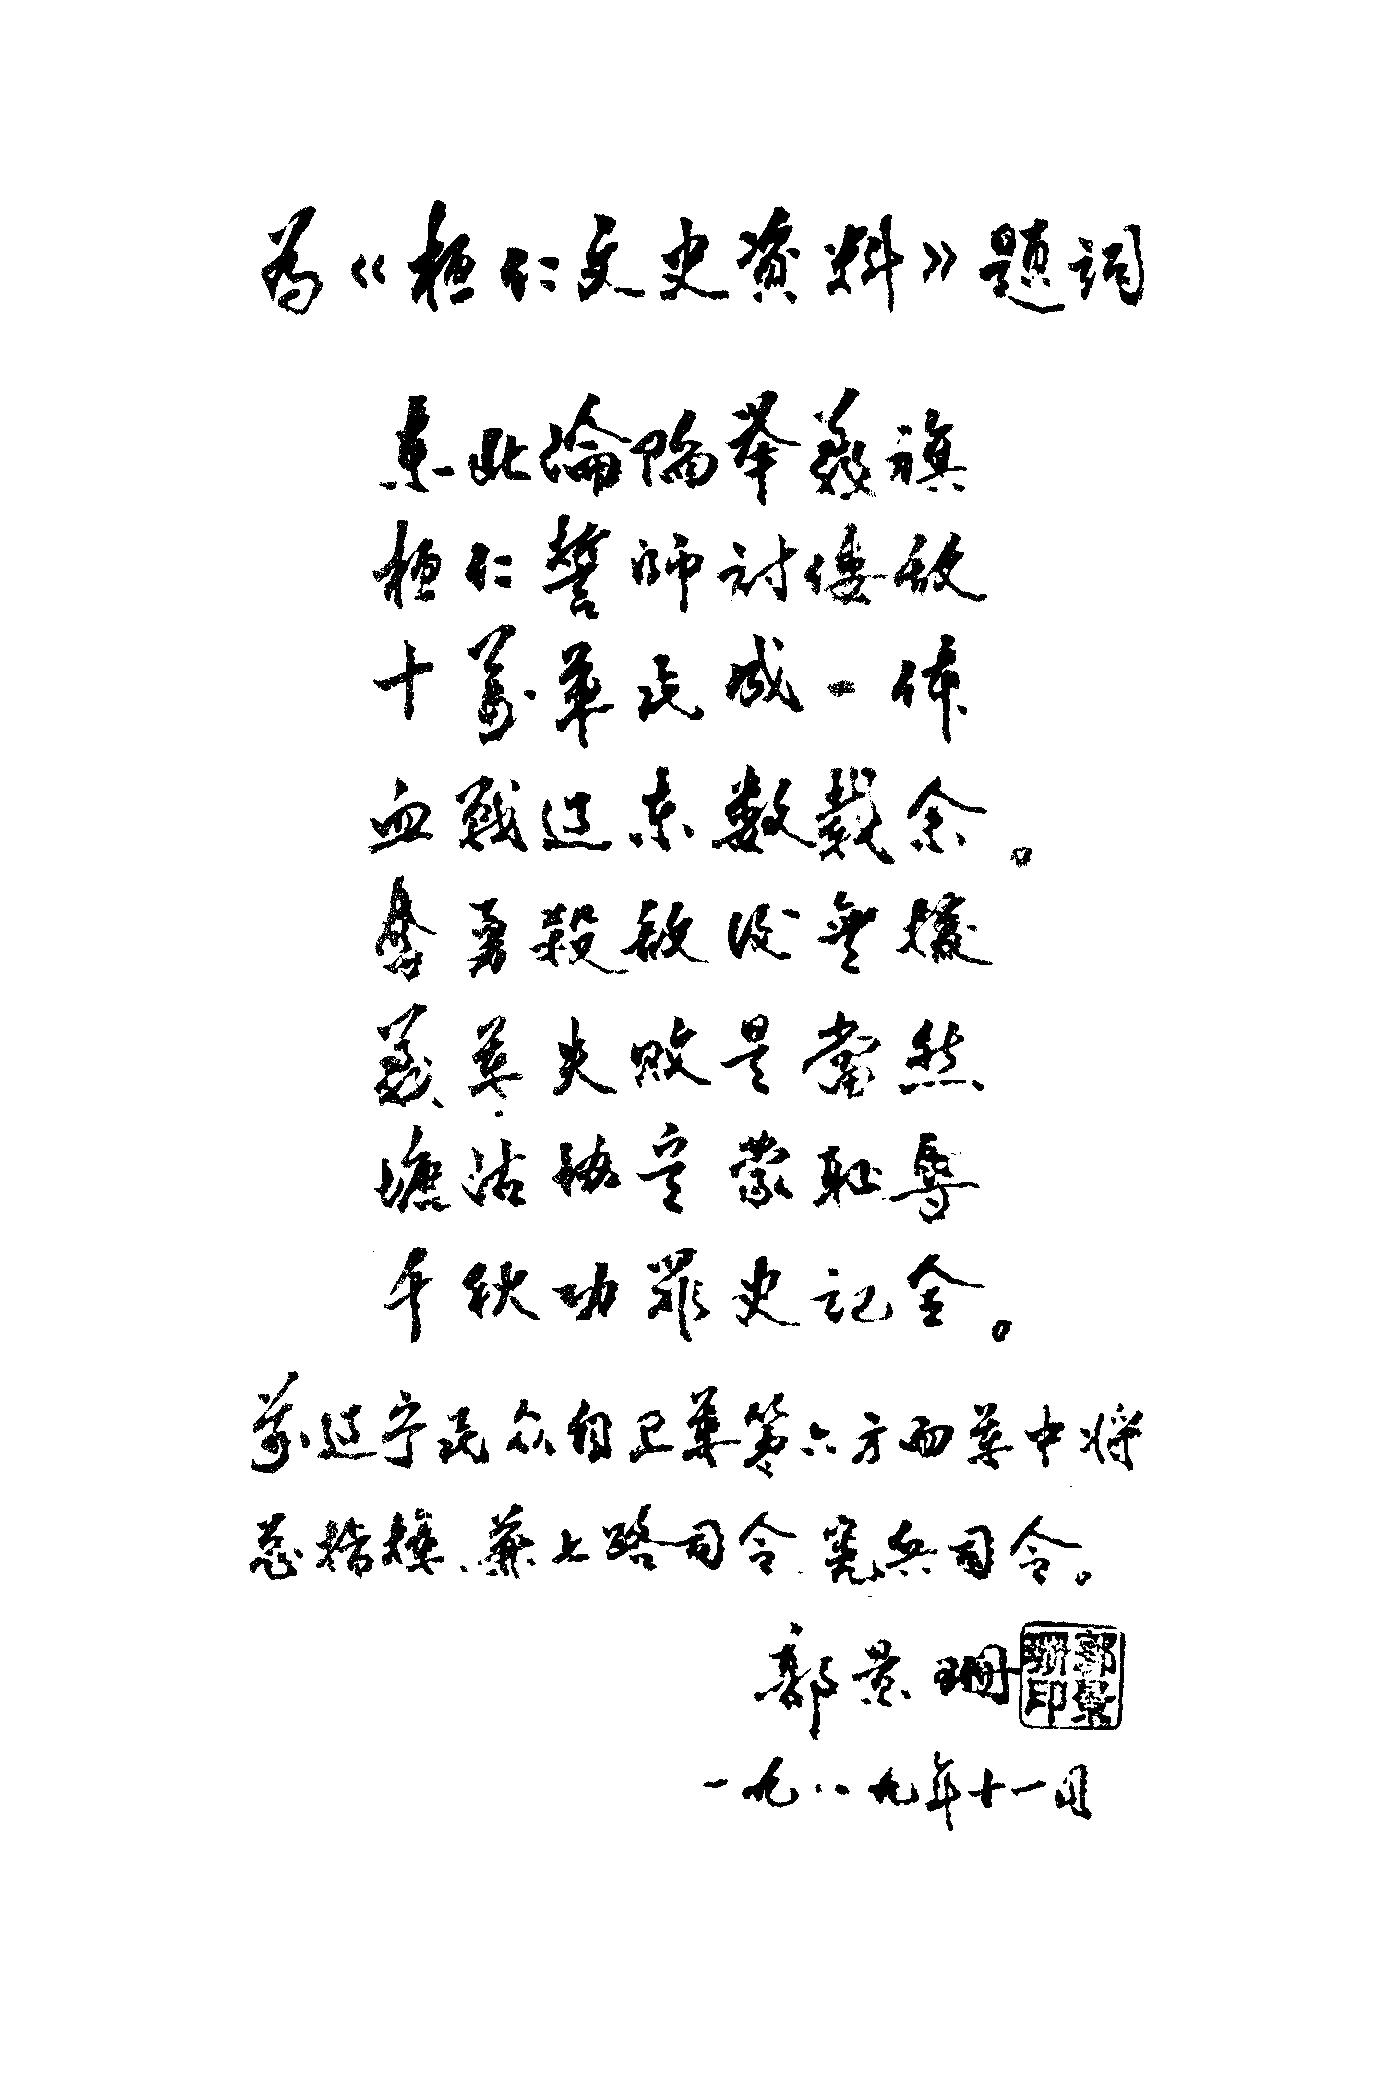 为《桓仁文史资料》题词
东北淪陷举義旗
桓仁誓师討倭敌
十萬军民成一体
血战辽东数载余。
奋勇殺敌后無援
義军失敗是當然
塘沽协定蒙耻辱
千秋功罪史记全。
前辽宁民众自卫军第六方面军中将
总指揮、兼七路司令、憲兵司令。
郭景珊
郭景珊印
一九八九年十一月